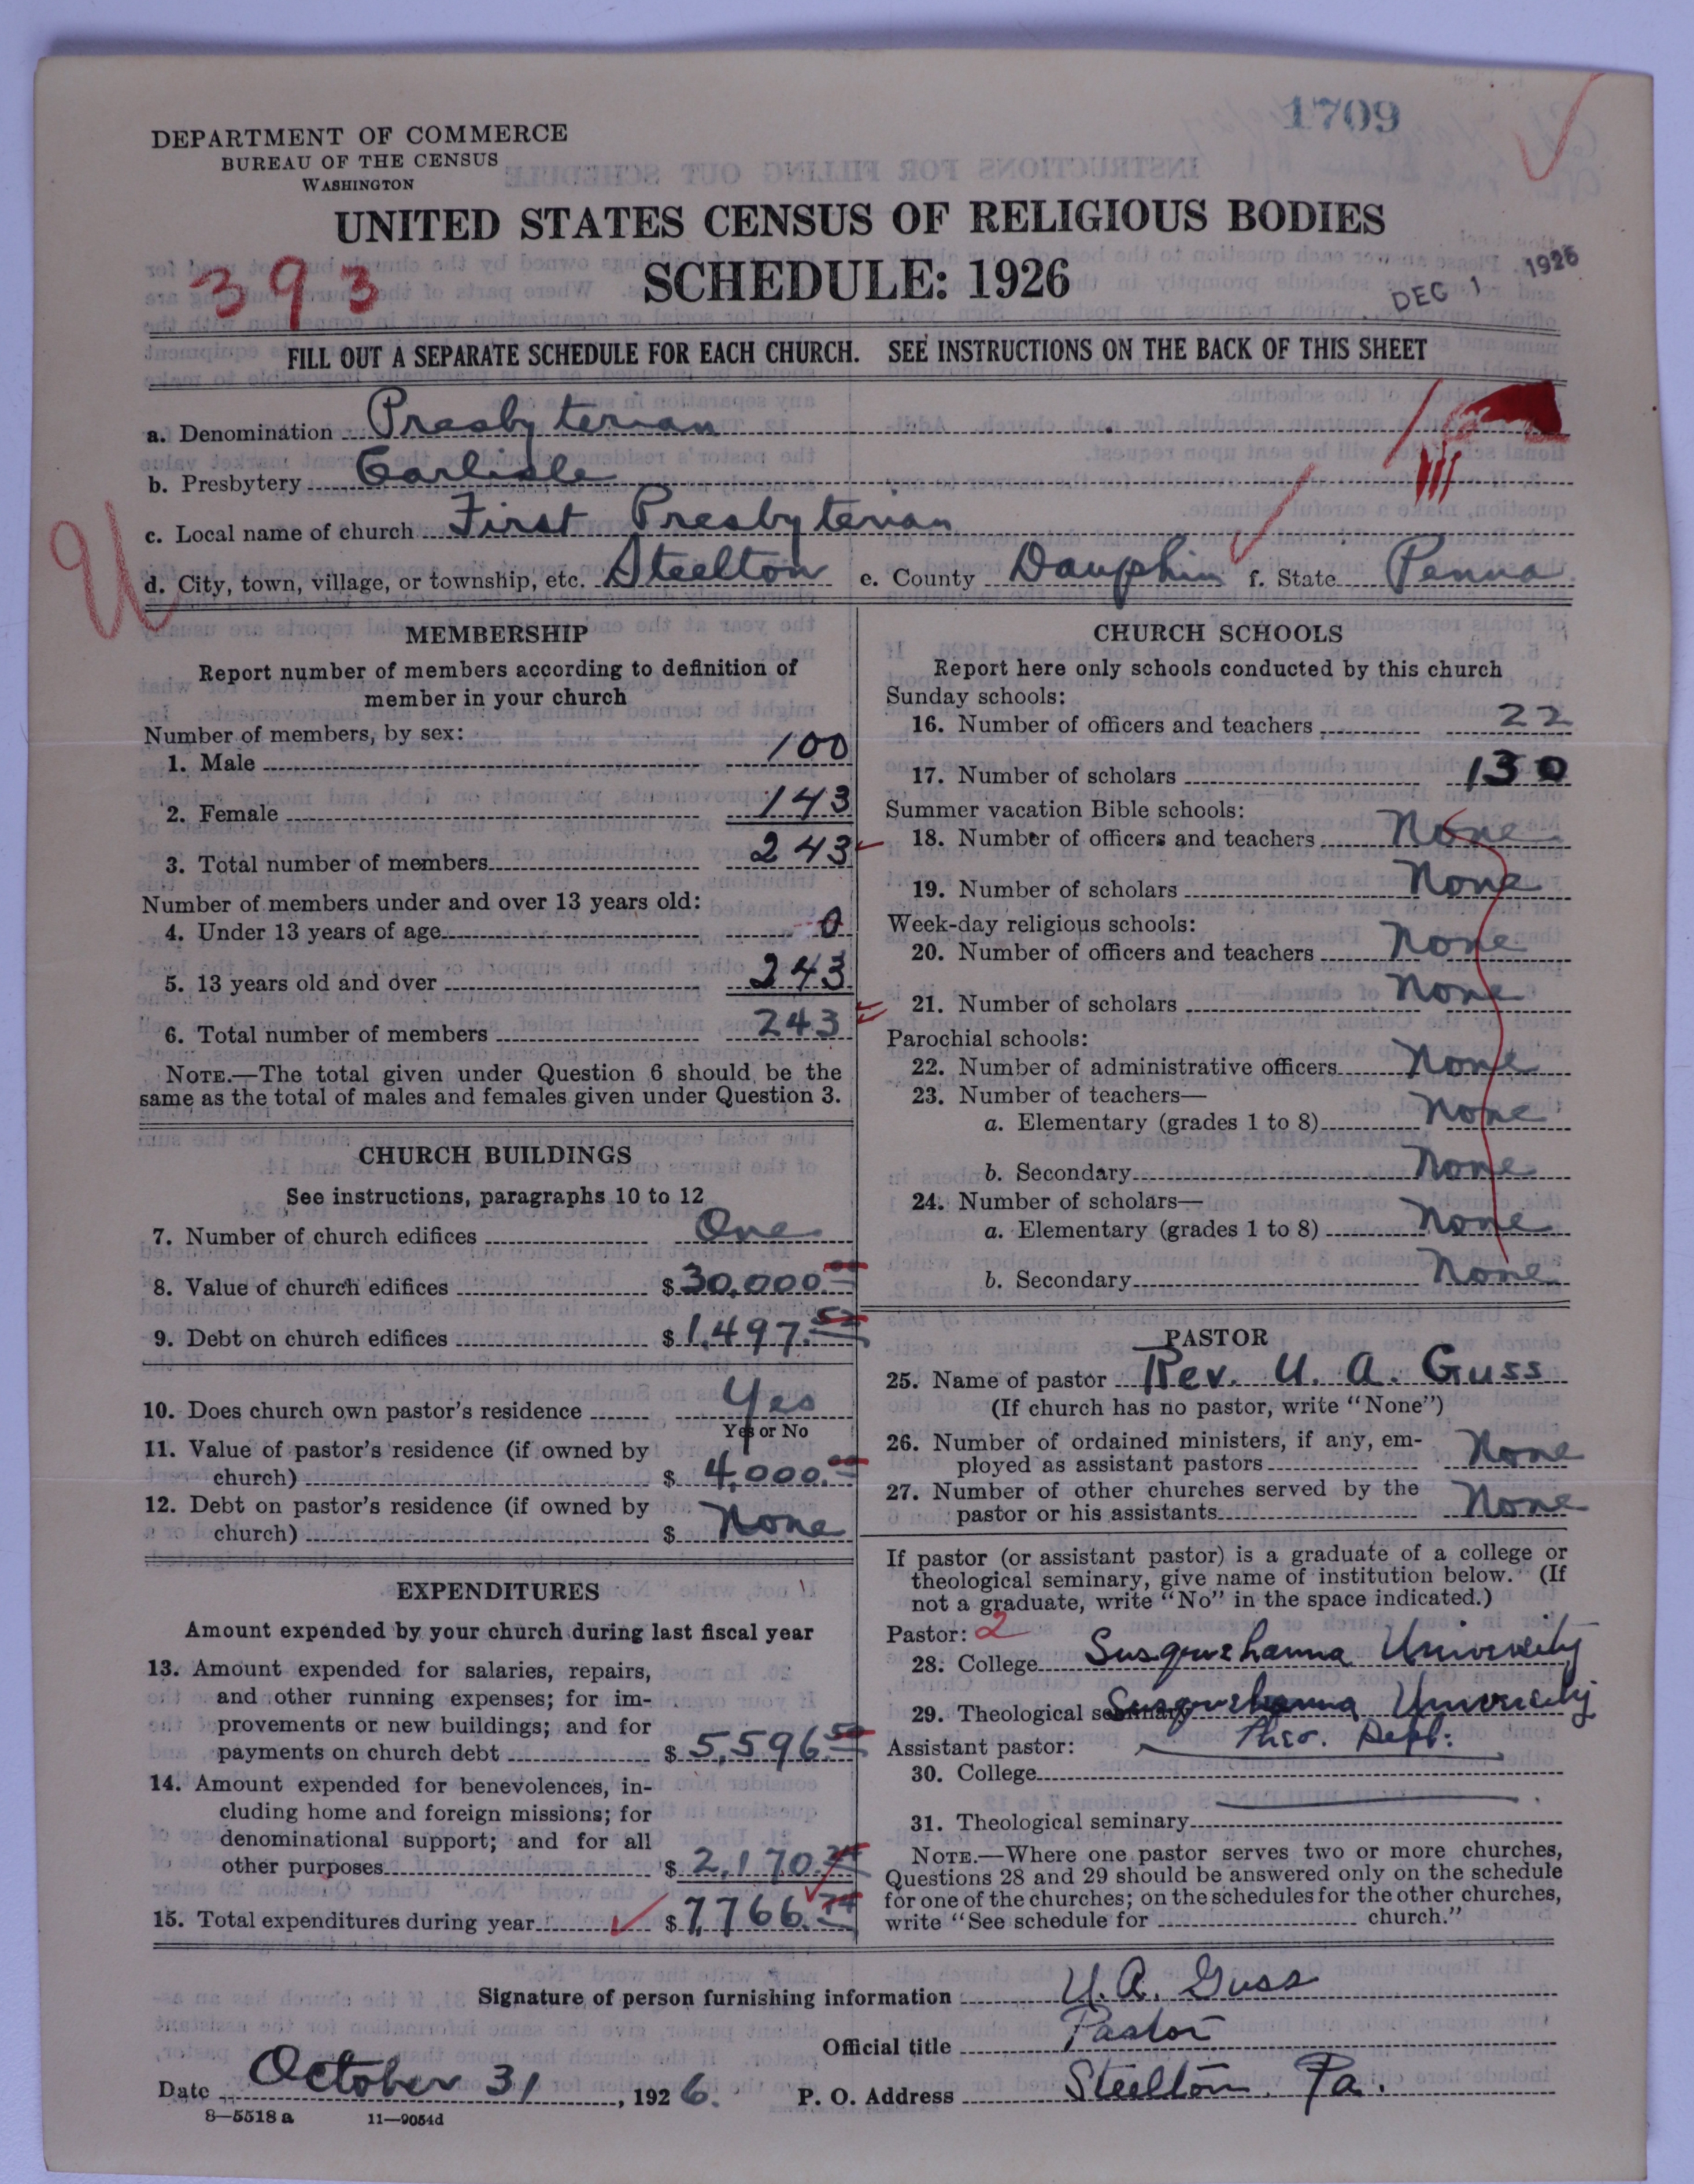 1709
DEPARTMENT OF COMMERCE
BUREAU OF THE CENSUS
WASHINGTON
UNITED STATES CENSUS OF RELIGIOUS BODIES
393
SCHEDULE: 1926
DEC 1 1926
FILL OUT A SEPARATE SCHEDULE FOR EACH CHURCH. SEE INSTRUCTIONS ON THE BACK OF THIS SHEET
a. Denomination Presbyterian
b. Presbytery Carlisle
c. Local name of church First Presbyterian
U
d. City, town, village, or township, etc. Steelton e. County Dauphin f. State Penna
MEMBERSHIP
Report number of members according to definition of
member in your church
Number of members, by sex:
1. Male 100
2. Female 143
3. Total number of members 243
Number of members under and over 13 years old:
4. Under 13 years of age 0
5. 13 years old and over 243
6. Total number of members 243
NOTE.—The total given under Question 6 should be the
same as the total of males and females given under Question 3.
CHURCH BUILDINGS
See instructions, paragraphs 10 to 12
7. Number of church edifices One
8. Value of church edifices $ 30,000.
9. Debt on church edifices $ 1,497.52
10. Does church own pastor's residence Yes
Yes or No
11. Value of pastor's residence (if owned by
church) $ 4,000.
12. Debt on pastor's residence (if owned by
church) $ None
EXPENDITURES
Amount expended by your church during last fiscal year
13. Amount expended for salaries, repairs,
and other running expenses; for im-
provements or new buildings; and for
payments on church debt $ 5,596.50
14. Amount expended for benevolences, in-
cluding home and foreign missions; for
denominational support; and for all
other purposes $ 2,170.24
15. Total expenditures during year $ 7,766.74
CHURCH SCHOOLS
Report here only schools conducted by this church
Sunday schools:
16. Number of officers and teachers 22
17. Number of scholars 130
Summer vacation Bible schools:
18. Number of officers and teachers None
19. Number of scholars None
Week-day religious schools:
20. Number of officers and teachers None
21. Number of scholars None
Parochial schools:
22. Number of administrative officers None
23. Number of teachers—
a. Elementary (grades 1 to 8) None
b. Secondary None
24. Number of scholars—
a. Elementary (grades 1 to 8) None
b. Secondary None
PASTOR
25. Name of pastor Rev. U. A. Guss
(If church has no pastor, write "None")
26. Number of ordained ministers, if any, em-
ployed as assistant pastors None
27. Number of other churches served by the
pastor or his assistants None
If pastor (or assistant pastor) is a graduate of a college or
theological seminary, give name of institution below. (If
not a graduate, write "No" in the space indicated.)
Pastor: 2
28. College Susquehanna University
29. Theological seminary Susquehanna University
Theo. Dept.
Assistant pastor:
30. College
31. Theological seminary
NOTE.—Where one pastor serves two or more churches,
Questions 28 and 29 should be answered only on the schedule
for one of the churches; on the schedules for the other churches,
write "See schedule for church."
Signature of person furnishing information U. A. Guss
Official title Pastor
Date October 31, 1926. P. O. Address Steelton, Pa.
8—5518 a 11—9054d